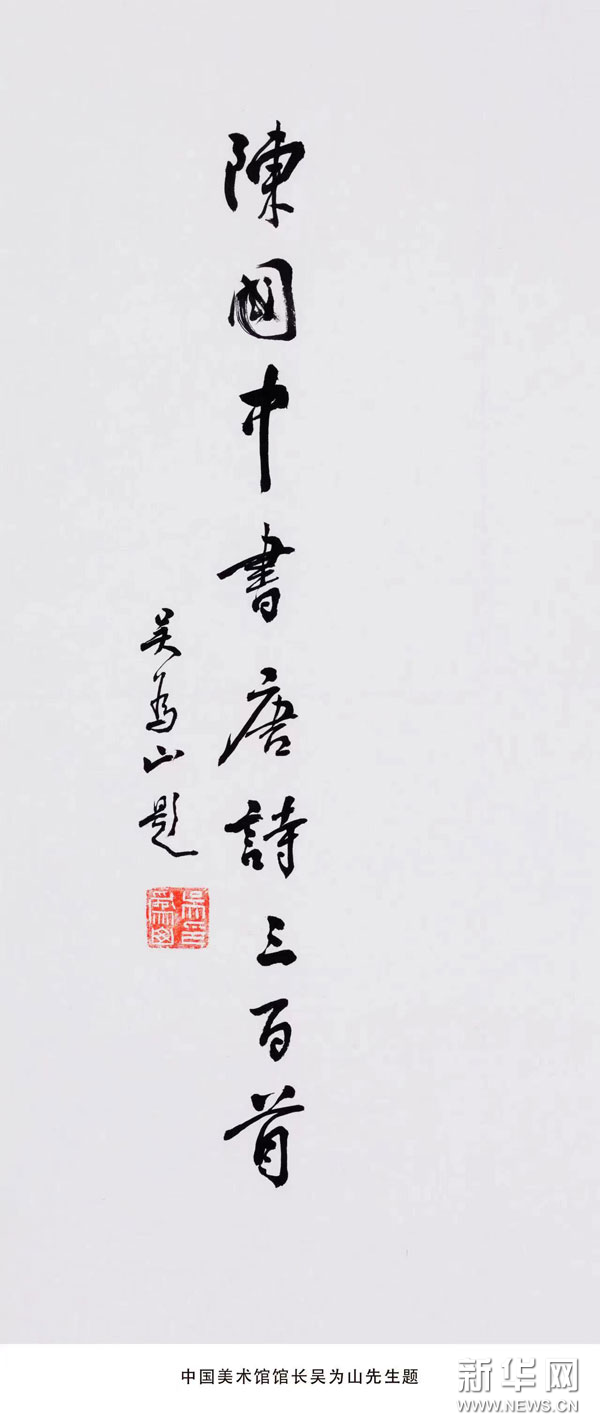 陳國中書唐詩三百首
吴為山題
中国美术馆馆长吴为山先生题
新华网
WWW.NEWS.CN